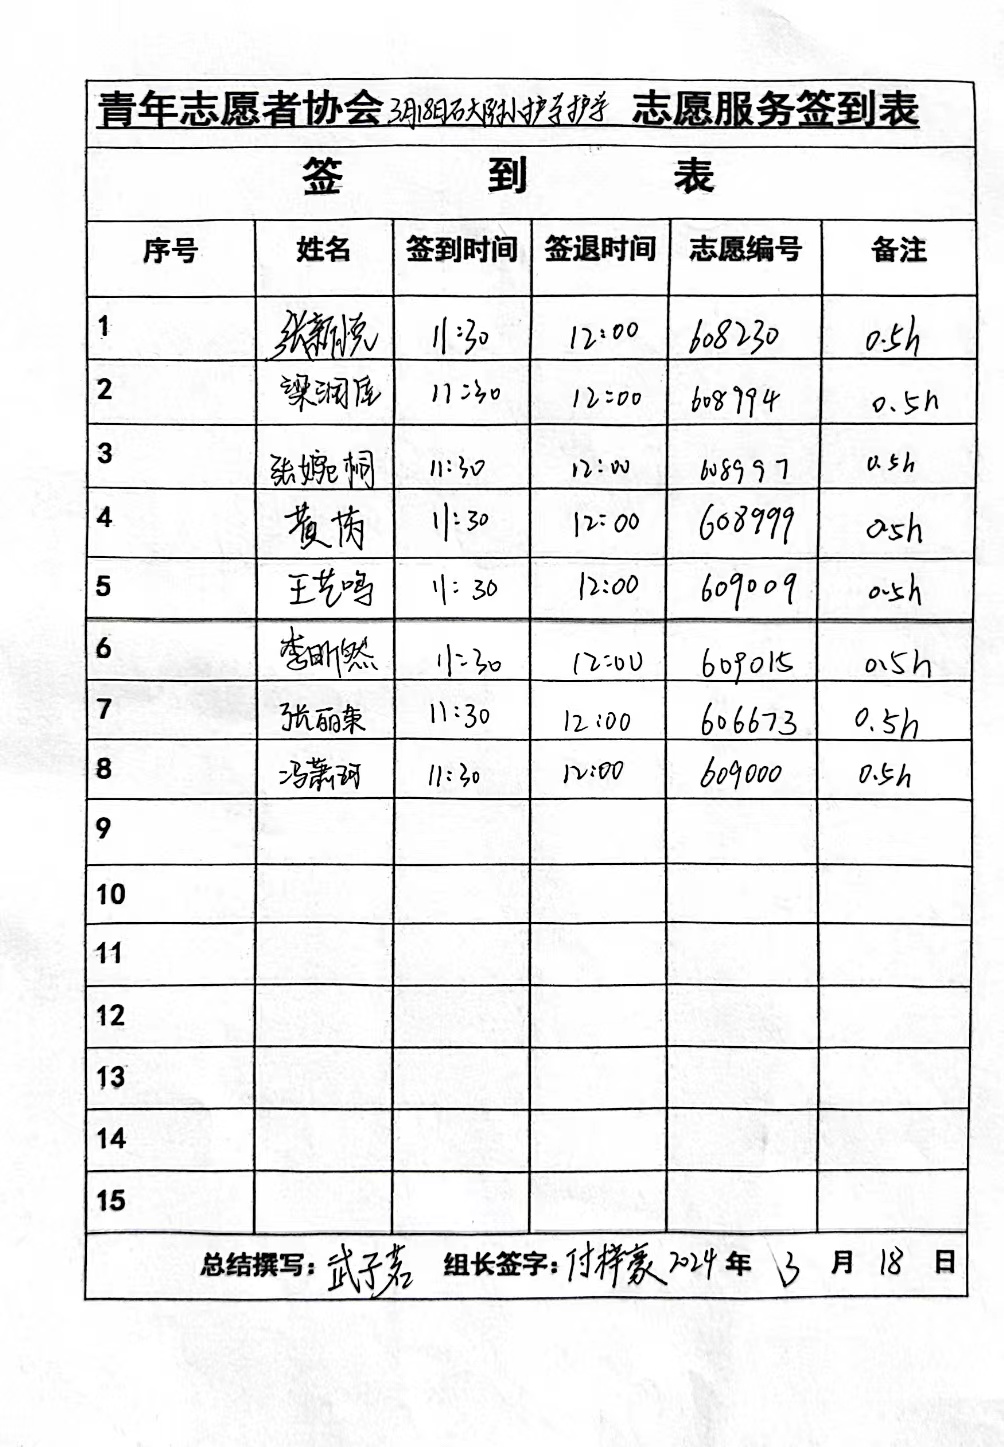 青年志愿者协会3月18日石大附小护学护学 志愿服务签到表
签 到 表
序号 姓名 签到时间 签退时间 志愿编号 备注
1 张新悦 11:30 12:00 608230 0.5h
2 梁润 11:30 12:00 608994 0.5h
3 张婉桐 11:30 12:00 608997 0.5h
4 黄芮 11:30 12:00 608999 0.5h
5 王艺鸣 11:30 12:00 609009 0.5h
6 李昕然 11:30 12:00 609015 0.5h
7 张丽 11:30 12:00 606673 0.5h
8 冯萧珂 11:30 12:00 609000 0.5h
9
10
11
12
13
14
15
总结撰写: 武子茗 组长签字: 付梓豪 2024年 3 月 18 日